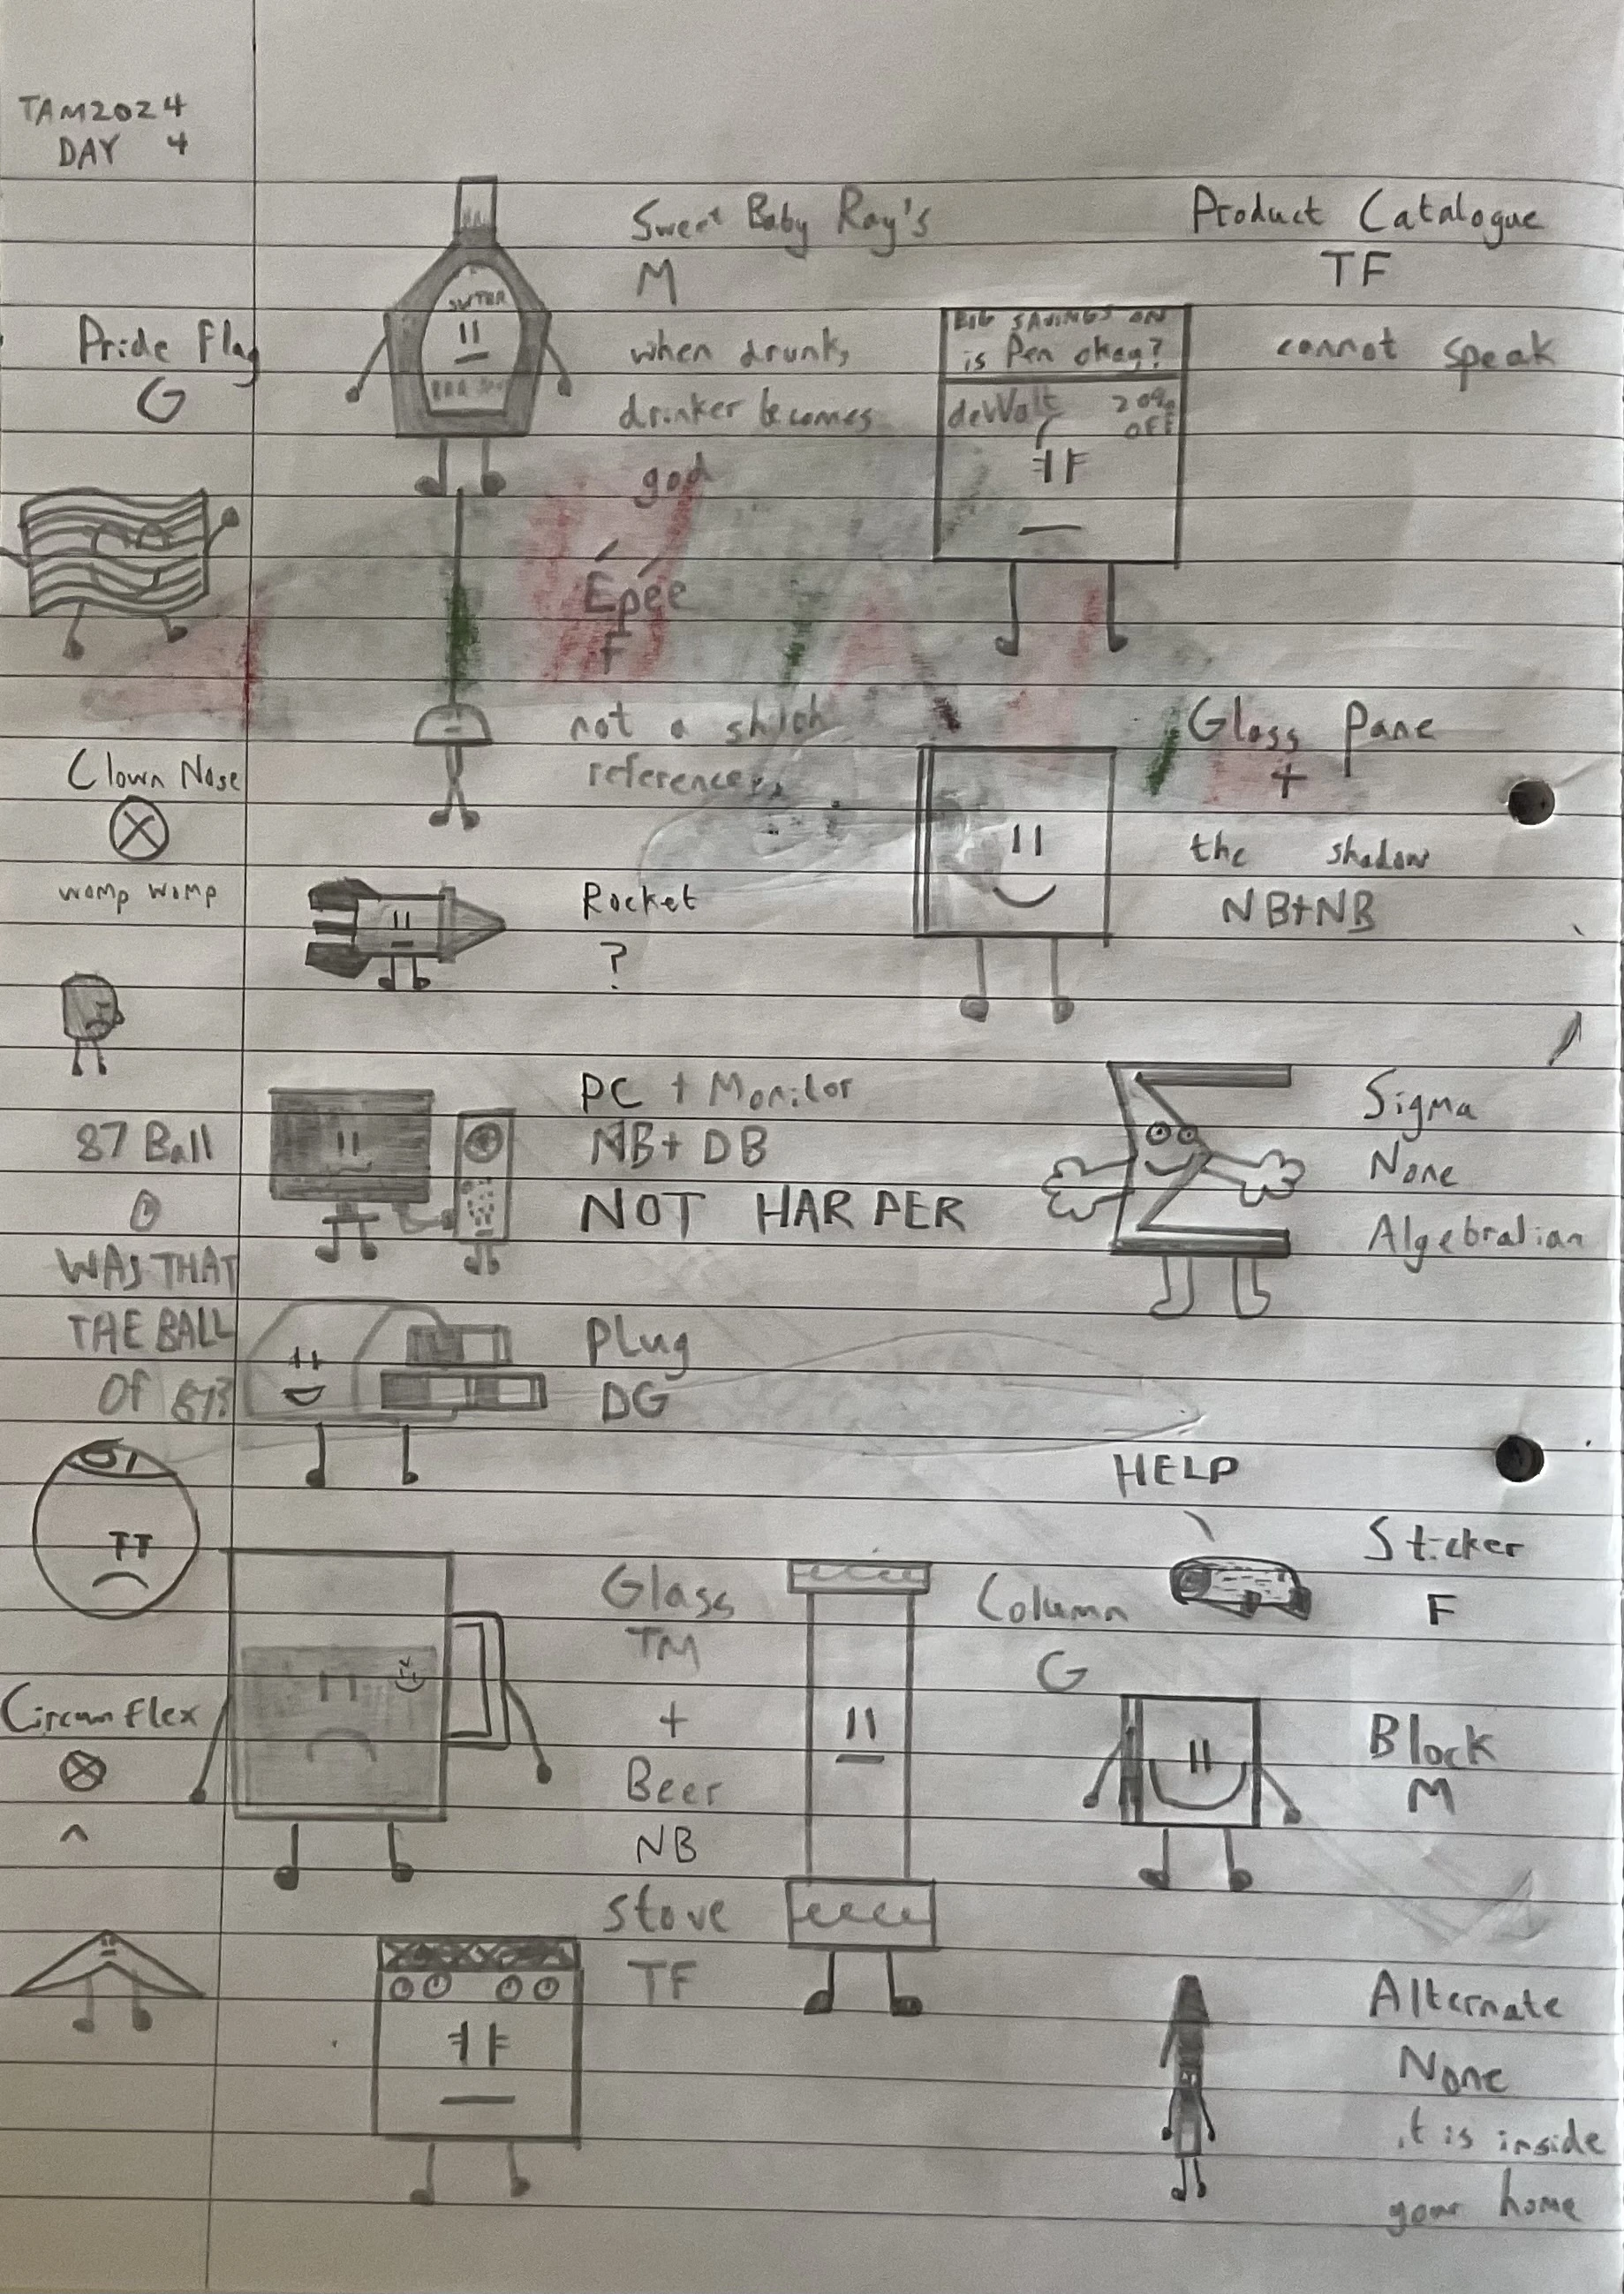 TAM2024
DAY 4
Pride Flag
G
Clown Nose
womp womp
87 Ball
WAS THAT
THE BALL
OF 87?
87
Circumflex
^
Sweet Baby Ray's
M
when drunk,
drinker becomes
god
Product Catalogue
TF
cannot speak
BIG SAVINGS ON
is Pen okay?
deWalt 20%
OFF
Épée
F
not a shich
reference
Glass Pane
+
the shadow
NB+NB
Rocket
?
PC + Monitor
NB + DB
NOT HARPER
Sigma
None
Algebralian
Plug
DG
HELP
Sticker
F
Glass
TM
+
Beer
NB
Column
G
Block
M
Stove
TF
Alternate
None
it is inside
your home